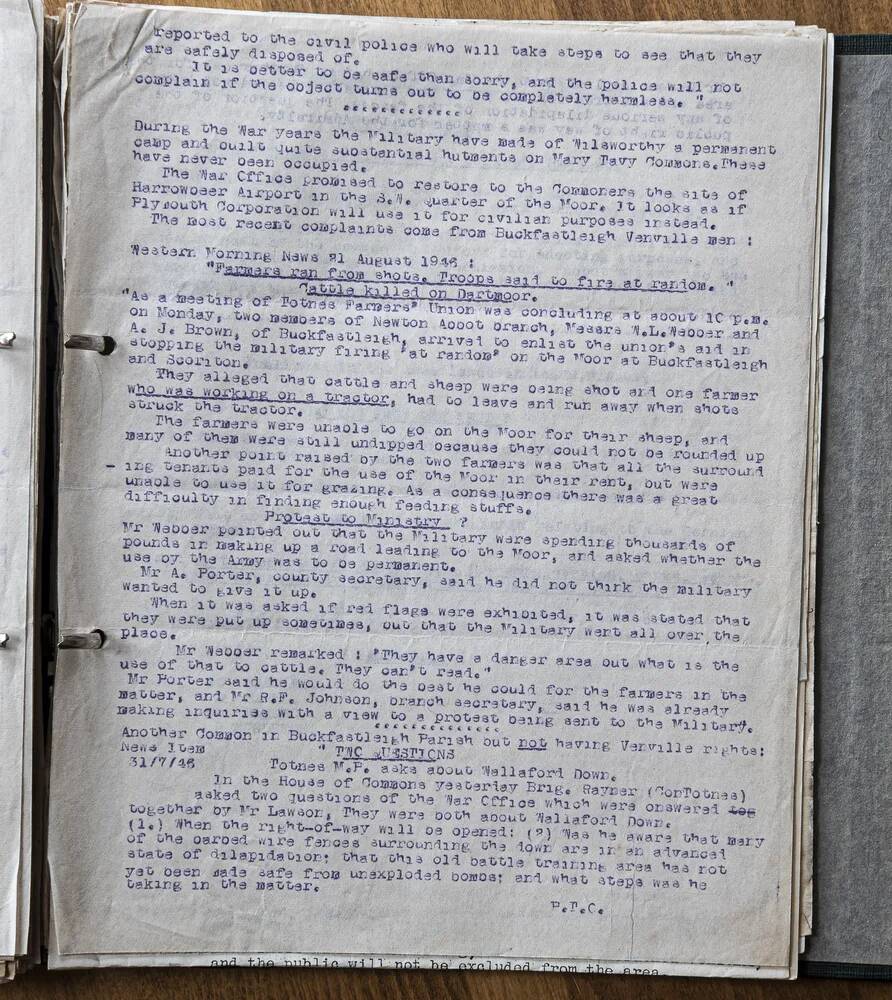 reported to the civil police who will take steps to see that they
are safely disposed of.
It is better to be safe than sorry, and the police will not
complain if the object turns out to be completely harmless. "
During the War years the Military have made of Wilsworthy a permanent
camp and built quite substantial hutments on Mary Tavy Commons.These
have never been occupied.
The War Office promised to restore to the Commoners the site of
Harrowbeer Airport in the S.W. quarter of the Moor. It looks as if
Plymouth Corporation will use it for civilian purposes instead.
The most recent complaints come from Buckfastleigh Venville men :
Western Morning News 21 August 1946 :
"Farmers ran from shots. Troops said to fire at random. "
Cattle killed on Dartmoor.
"As a meeting of Totnes Farmers' Union was concluding at about 10 p.m.
on Monday, two members of Newton Abbot branch, Messrs W.L.Webber and
A. J. Brown, of Buckfastleigh, arrived to enlist the union's aid in
stopping the military firing 'at random' on the Moor at Buckfastleigh
and Scoriton.
They alleged that cattle and sheep were being shot and one farmer
who was working on a tractor, had to leave and run away when shots
struck the tractor.
The farmers were unable to go on the Moor for their sheep, and
many of them were still undipped because they could not be rounded up
Another point raised by the two farmers was that all the surround
- ing tenants paid for the use of the Moor in their rent, but were
unable to use it for grazing. As a consequence there was a great
difficulty in finding enough feeding stuffs.
Protest to Ministry ?
Mr Webber pointed out that the Military were spending thousands of
pounds in making up a road leading to the Moor, and asked whether the
use by the Army was to be permanent.
Mr A. Porter, county secretary, said he did not think the military
wanted to give it up.
When it was asked if red flags were exhibited, it was stated that
they were put up sometimes, but that the Military went all over the
place.
Mr Webber remarked : "They have a danger area but what is the
use of that to cattle. They can't read."
Mr Porter said he would do the best he could for the farmers in the
matter, and Mr R.F. Johnson, branch secretary, said he was already
making inquiries with a view to a protest being sent to the Military.
Another Common in Buckfastleigh Parish but not having Venville rights:
News Item " TWO QUESTIONS
31/7/46 Totnes M.P. asks about Wallaford Down.
In the House of Commons yesterday Brig. Rayner (ConTotnes)
asked two questions of the War Office which were onswered tog
together by Mr Lawson, They were both about Wallaford Down.
(1.) When the right-of-way will be opened: (2) Was he aware that many
of the barbed wire fences surrounding the down are in an advanced
state of dilapidation; that this old battle training area has not
yet been made safe from unexploded bombs; and what steps was he
taking in the matter.
P.T.C.
and the public will not be excluded from the area.